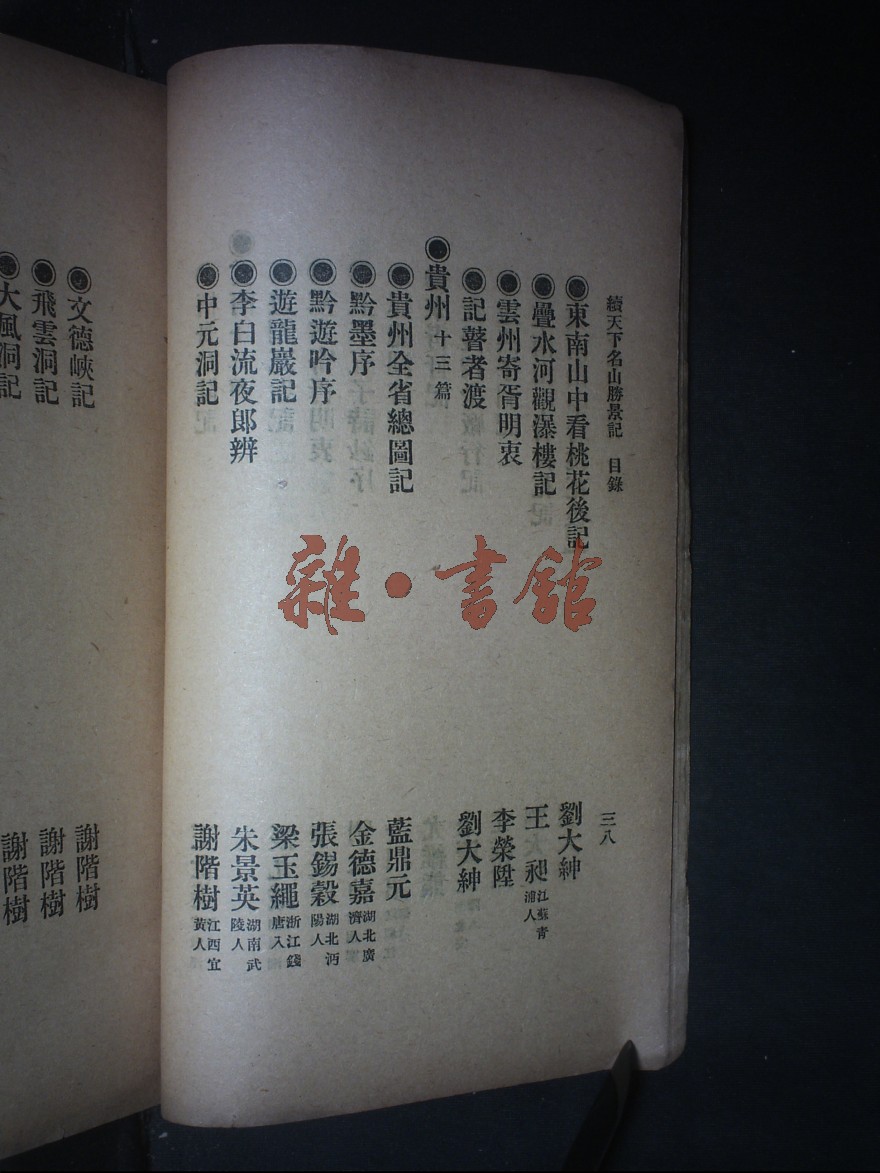 續天下名山勝景記 目錄 三八
東南山中看桃花後記 劉大紳
疊水河觀瀑樓記 王昶 江蘇青浦人
雲州寄胥明衷 李榮陞
記瞽者渡 劉大紳
貴州 十三篇
貴州全省總圖記 藍鼎元
黔墨序 金德嘉 湖北廣濟人
黔遊吟序 張錫穀 湖北沔陽人
遊龍巖記 梁玉繩 浙江錢唐人
李白流夜郎辨 朱景英 湖南武陵人
中元洞記 謝階樹 江西宜黃人
文德峽記 謝階樹
飛雲洞記 謝階樹
大風洞記 謝階樹
雜·書館